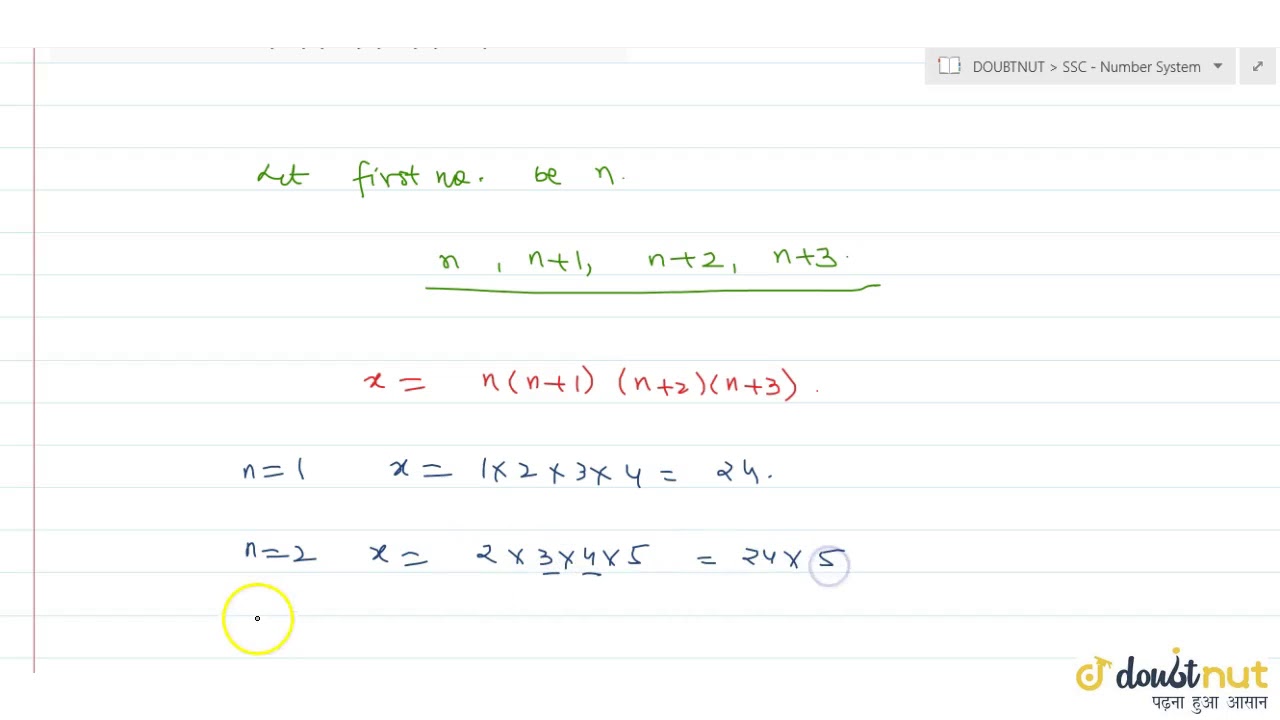 DOUBTNUT > SSC - Number System
Let first no. be n.
n , n+1, n+2, n+3.
x = n(n+1) (n+2)(n+3).
n=1 x = 1×2×3×4 = 24.
n=2 x = 2×3×4×5 = 24×5
doubtnut
पढ़ना हुआ आसान